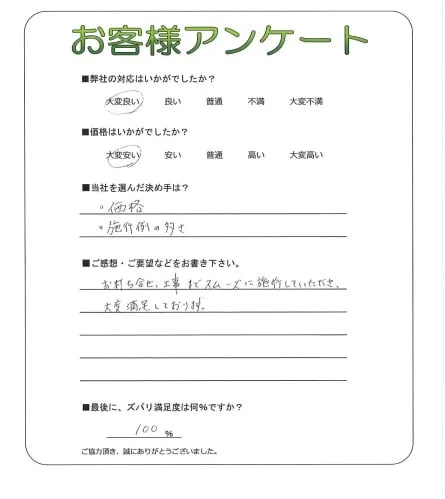 お客様アンケート
■弊社の対応はいかがでしたか？
大変良い 良い 普通 不満 大変不満
■価格はいかがでしたか？
大変安い 安い 普通 高い 大変高い
■当社を選んだ決め手は？
。価格
。施行例の多さ
■ご感想・ご要望などをお書き下さい。
お打ち合せ、工事までスムーズに施行していただき、
大変満足しております。
■最後に、ズバリ満足度は何％ですか？
100 ％
ご協力頂き、誠にありがとうございました。